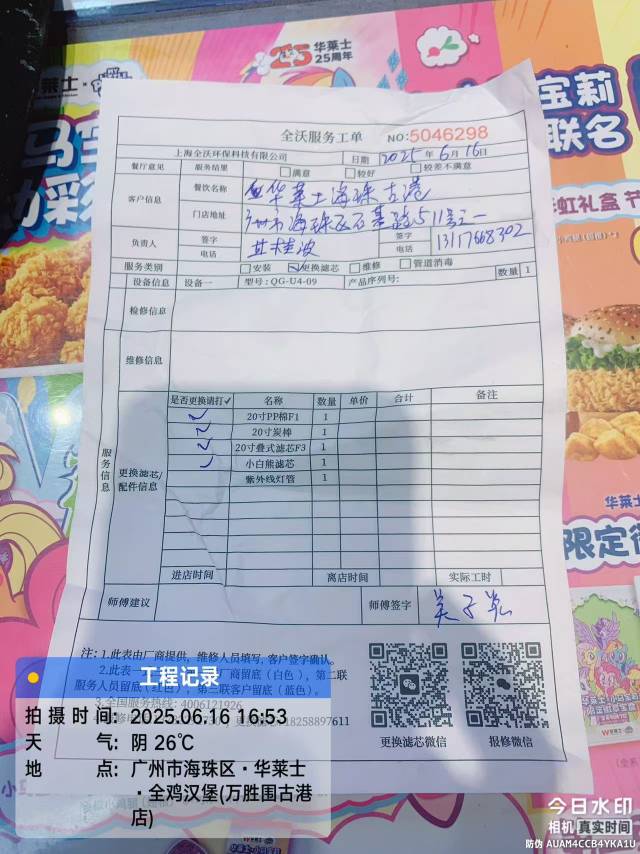 华莱士
25周年
莱士
宝莉
联名
马宝
功彩
虹礼盒 节
全沃服务工单 NO:5046298
上海全沃环保科技有限公司 日期 2025 年 6 月 16 日
餐厅意见 服务结果 满意 较好 较差不满意
客户信息 餐饮名称 华莱士海珠古港
门店地址 广州市海珠区石基路511号之一
负责人 签字 电话 签字 电话 13117668302
服务类别 安装 更换滤芯 维修 管道消毒
设备信息 设备一 型号: QG-U4-09 产品序列号: 数量 1
检修信息
维修信息
服务信息
更换滤芯/配件信息
是否更换请打✓ 名称 数量 单价 合计 备注
✓ 20寸PP棉F1 1
✓ 20寸炭棒 1
✓ 20寸叠式滤芯F3 1
✓ 小白熊滤芯 1
紫外线灯管 1
进店时间 离店时间 实际工时
师傅建议 师傅签字
注: 1.此表由厂商提供，维修人员填写，客户签字确认。
2.此表一 厂商留底（白色），第二联
服务人员留底（红色），第三联客户留底（蓝色）。
3.全国服务热线: 4006121926
18258897611
更换滤芯微信 报修微信
华莱士
限定
工程记录
拍摄时间: 2025.06.16 16:53
天 气: 阴 26℃
地 点: 广州市海珠区·华莱士
·全鸡汉堡(万胜围古港
店)
今日水印
相机 真实时间
防伪 AUAM4CCB4YKA1U